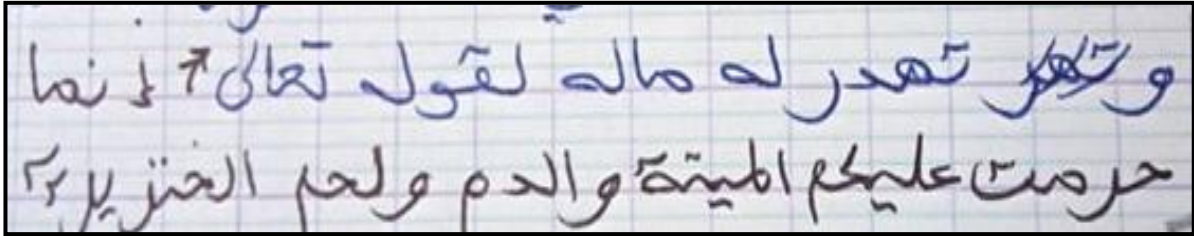 و تهدر له ماله لقوله تعالى "إنما
حرمت عليكم الميتة والدم ولحم الخنزير"